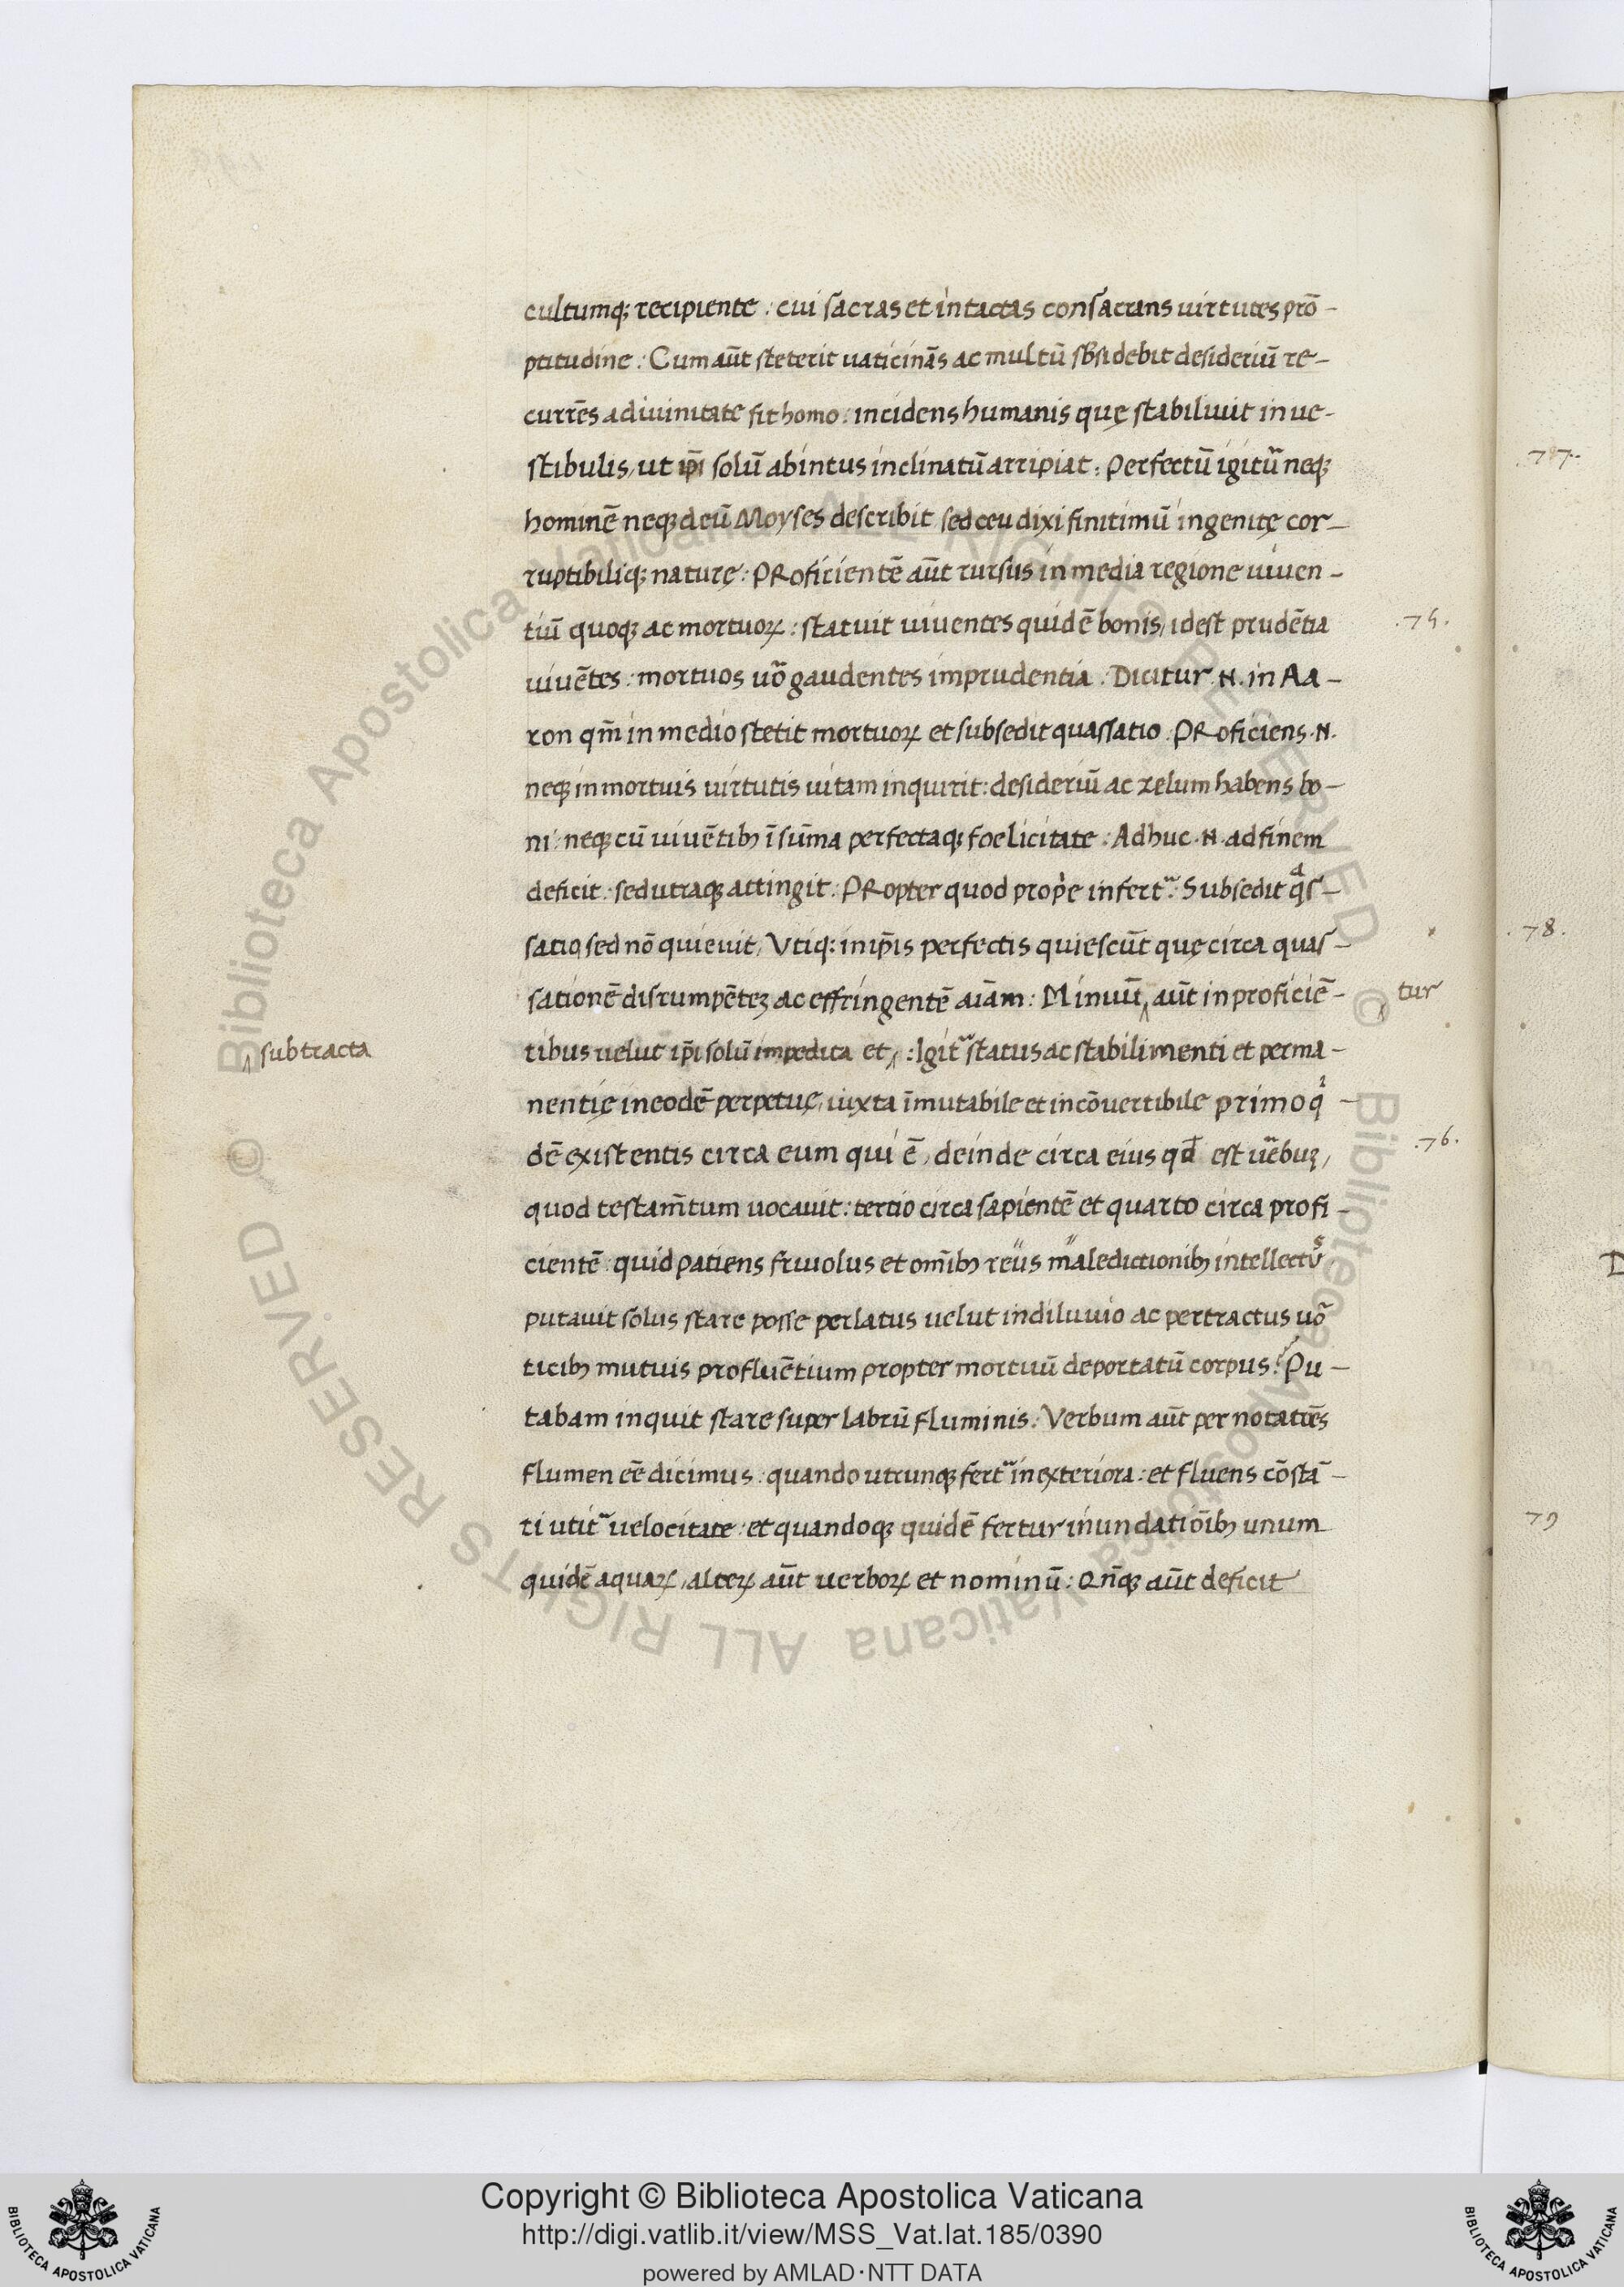 cultumq; recipiente : cui sacras et intactas consacrans uirtutes prō-
ptitudine : Cum aūt steterit uaticinās ac multū sb̄sidebit desideriū re-
currēs a diuinitate fit homo : incidens humanis quę stabiliuit in ue-
stibulis, ut ip̄i solū ab intus inclinatū arripiat : Perfectū igitū neq;
hominē neq; deū Moyses describit sed ceu dixi finitimū ingenitę cor-
ruptibiliq; naturę : PRoficientē aūt rursus in media regione uiuen-
tiū quoq; ac mortuoꝝ : statuit uiuentes quidē bonis, idest prudētia
uiuētes : mortuos uō gaudentes imprudentia : Dicitur .N. in Aa-
ron qm̄ in medio stetit mortuoꝝ et subsedit quassatio . PRoficiens .N.
neq; in mortuis uirtutis uitam inquirit : desideriū ac zelum habens bo-
ni : neq; cū uiuētibꝫ ī sūma perfectaq; foelicitate : Adhuc .N. ad finem
deficit : sed utraq; attingit : PRopter quod prop̄e infert᷑ : Subsedit qᵃs-
satio, sed nō quieuit, Vtiq; in ip̄is perfectis quiescūt quę circa quas-
sationē disrumpētez ac effringentē aīam : Minuūt ‸ aūt in proficiē-
‸ tur
tibus uelut ip̄i solū impedita et ‸ : Igit᷑ status ac stabilimenti et perma-
‸ subtracta
nentię in eodē perpetuę, iuxta īmutabile et incōuertibile primo qⁱ-
dē existentis circa eum qui ē, deinde circa eius qđ est uēbuꝫ,
quod testam̄tum uocauit : tertio circa sapientē et quarto circa profi-
cientē : quid patiens friuolus et om̄ibꝫ reus maledictionibꝫ intellectuˢ
putauit solus stare posse perlatus uelut in diluuio ac pertractus uō
ticibꝫ mutuis profluētium propter mortuū deportatū corpus : Pu-
tabam inquit stare super labrū fluminis : Verbum aūt per notatiēs
flumen eē dicimus : quando utrunq; fert᷑ in exteriora : et fluens cōstā-
ti utit᷑ uelocitate : et quandoq; quidē fertur inundatiōibꝫ unum
quidē aquaꝝ, alteꝝ aūt uerboꝝ et nominū : Qn̄q; aūt deficit
.75.
.76.
.77.
.78.
79
Copyright © Biblioteca Apostolica Vaticana
http://digi.vatlib.it/view/MSS_Vat.lat.185/0390
powered by AMLAD·NTT DATA
BIBLIOTECA APOSTOLICA VATICANA
BIBLIOTECA APOSTOLICA VATICANA
© Biblioteca Apostolica Vaticana ALL RIGHTS RESERVED © Biblioteca Apostolica Vaticana ALL RIGHTS RESERVED